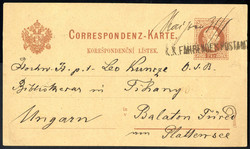 CORRESPONDENZ-KARTE.
KORESPONDENČNÍ LÍSTEK.
K.K. FAHRENDES POSTAMT
P. T. Leo Kuncze O.S.B.
Bibliothecar in Tihany
Balaton Füred
Ungarn
am Plattensee